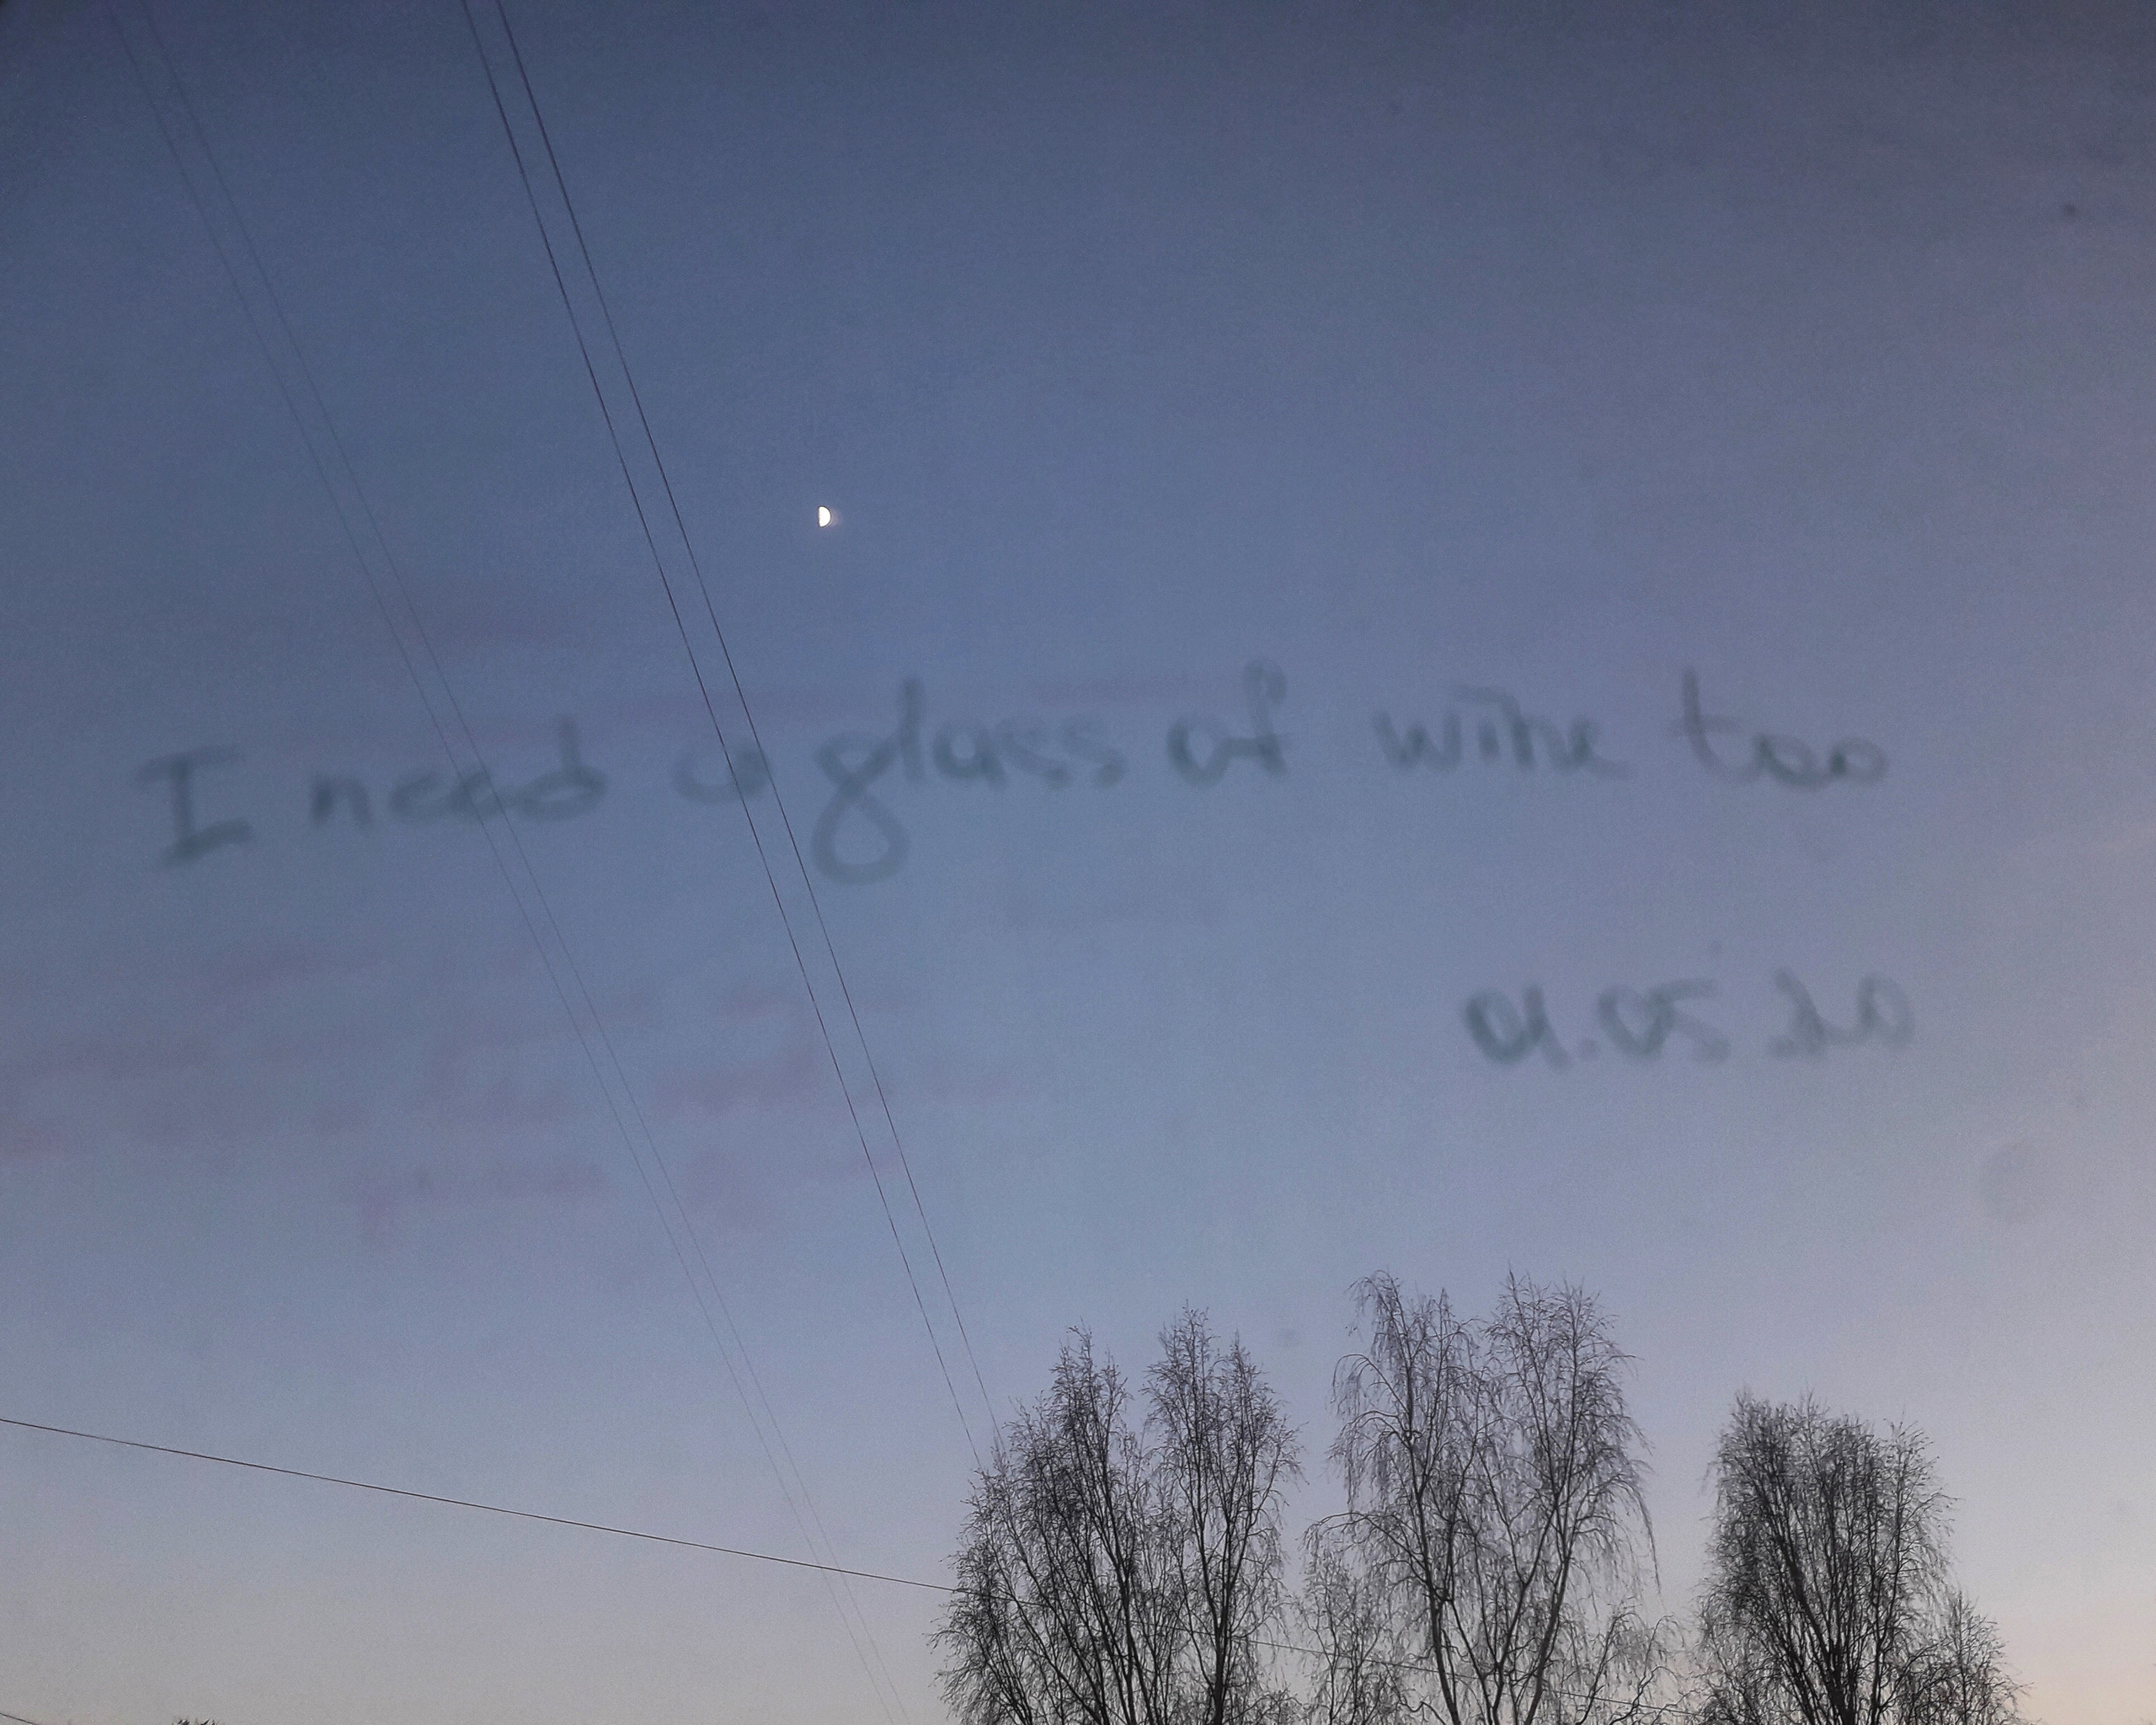 I need a glass of wine too
01.05.20